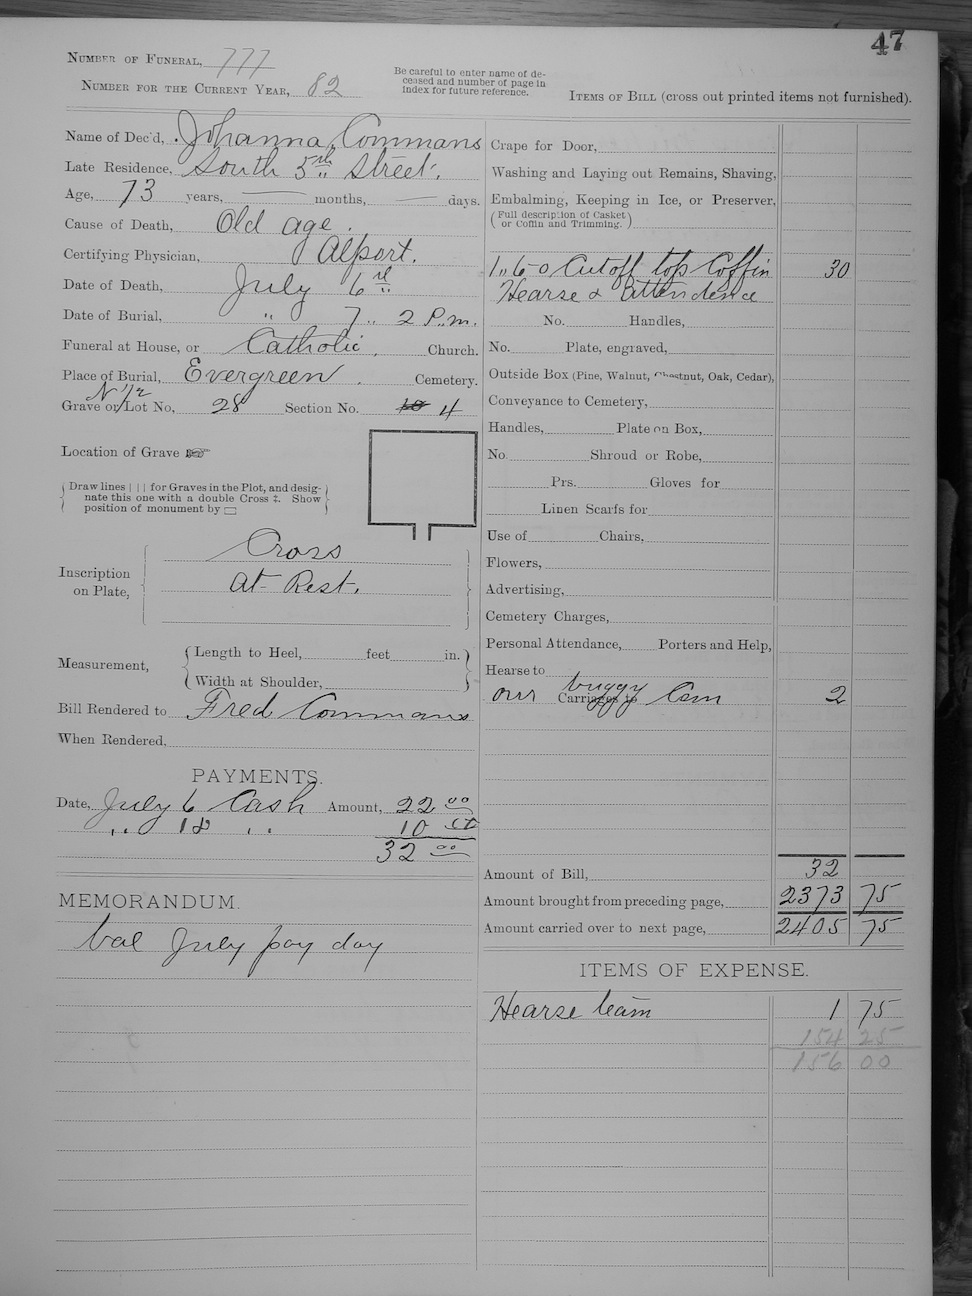 47
Number of Funeral, 777
Number for the Current Year, 82
Be careful to enter name of de-
ceased and number of page in
index for future reference.
Items of Bill (cross out printed items not furnished).
Name of Dec'd, Johanna Commans
Late Residence, South 5th Street,
Age, 73 years, — months, — days.
Cause of Death, Old age.
Certifying Physician, Alport.
Date of Death, July 6
Date of Burial, " 7 " 2 P.m.
Funeral at House, or Catholic, Church.
Place of Burial, Evergreen. Cemetery.
N 1/2
Grave or Lot No, 28 Section No. 10 4
Location of Grave
Draw lines | | | for Graves in the Plot, and desig-
nate this one with a double Cross ‡. Show
position of monument by □
Inscription
on Plate,
Cross
at Rest.
Measurement,
Length to Heel, feet in.
Width at Shoulder,
Bill Rendered to Fred Commans
When Rendered,
PAYMENTS.
Date, July 6 Cash Amount, 22 00
" 18 " 10 00
32 00
MEMORANDUM.
bal July pay day
Crape for Door,
Washing and Laying out Remains, Shaving,
Embalming, Keeping in Ice, or Preserver,
(Full description of Casket
or Coffin and Trimming.)
1 " 6-0 Cutoff top Coffin 30
Hearse & attendence
No. Handles,
No. Plate, engraved,
Outside Box (Pine, Walnut, Chestnut, Oak, Cedar),
Conveyance to Cemetery,
Handles, Plate on Box,
No. Shroud or Robe,
Prs. Gloves for
Linen Scarfs for
Use of Chairs,
Flowers,
Advertising,
Cemetery Charges,
Personal Attendance, Porters and Help,
Hearse to
buggy
our Carriages to Cem 2
Amount of Bill, 32
Amount brought from preceding page, 2373 75
Amount carried over to next page, 2405 75
ITEMS OF EXPENSE.
Hearse team 1 75
154 25
156 00